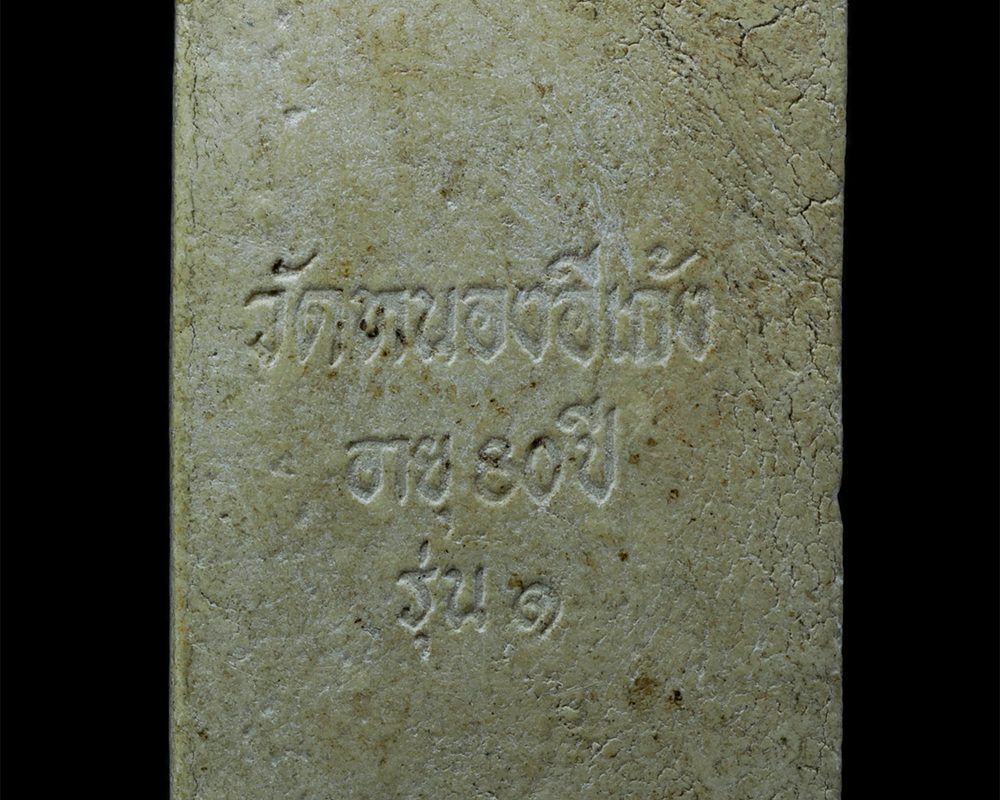 วัดหนองอีเก้ง
อายุ ๘๐ปี
รุ่น ๑